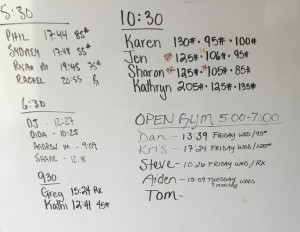 5:30
PHIL 17:44 85#
SYDNEY 17:48 55#
RYAN M 19:45 75#
RACHEL 20:55 Rx
6:30
DJ - 12:27
DIDA - 10:28
ANDREW M - 9:09
SHANE - 12:18
930
Greg 15:24 Rx
Kathi 12:41 45#
10:30
Karen 130# · 95# · 100#
Jen 125# · 106# · 95#
Sharon 125# · 105# · 85#
Kathryn 205# · 125# · 135#
OPEN GYM 5:00-7:00
Dan - 13:39 FRIDAY WOD / 95#
Kris - 17:24 FRIDAY WOD /
Steve - 10:26 FRIDAY WOD / RX
Aiden - 15:59 TUESDAY WOD
Tom -